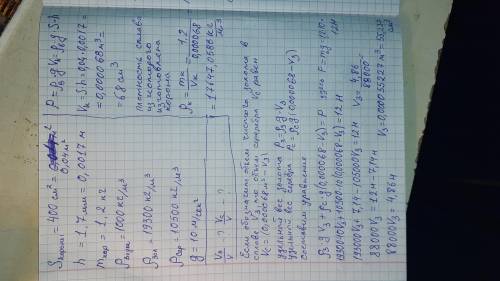 Sкороны = 400 см² =
0,04 м²
h = 1,7 мм = 0,0017 м
mкор = 1,2 кг
ρводы = 1000 кг/м³
ρзол = 19300 кг/м³
ρсер = 10500 кг/м³
g = 10 м/сек²
Vз/V ? Vс/V - ?
P = ρв g Vк = ρв g S·h
Vк = S·h = 0,04·0,0017 =
= 0,000068 м³ =
= 6,8 см³
Плотность сплава
из которого
изготовлена
корона
ρк = mк/Vк = 1,2/0,000068
= 17647,0588 кг/м³
Если обозначить объем чистого золота в
сплаве V3, то объем серебра Vс равен
Vс = (0,000068 - V3)
удельной вес золота Pз = ρз g V3
удельной вес серебра Pс = ρс g (0,000068 - V3)
Составлем уравнение
ρз g V3 + ρс·g(0,000068 - V3) = P
193000V3 + 105000(0,000068 - V3) = 12 Н
193000V3 + 7,14 - 105000V3 = 12 Н
88000V3 = 12 Н - 7,14 Н
88000V3 = 4,86 Н
F = mg = 12 Н
V3 = 4,86/88000
V3 = 0,000055227 м³ = 55,227
см³